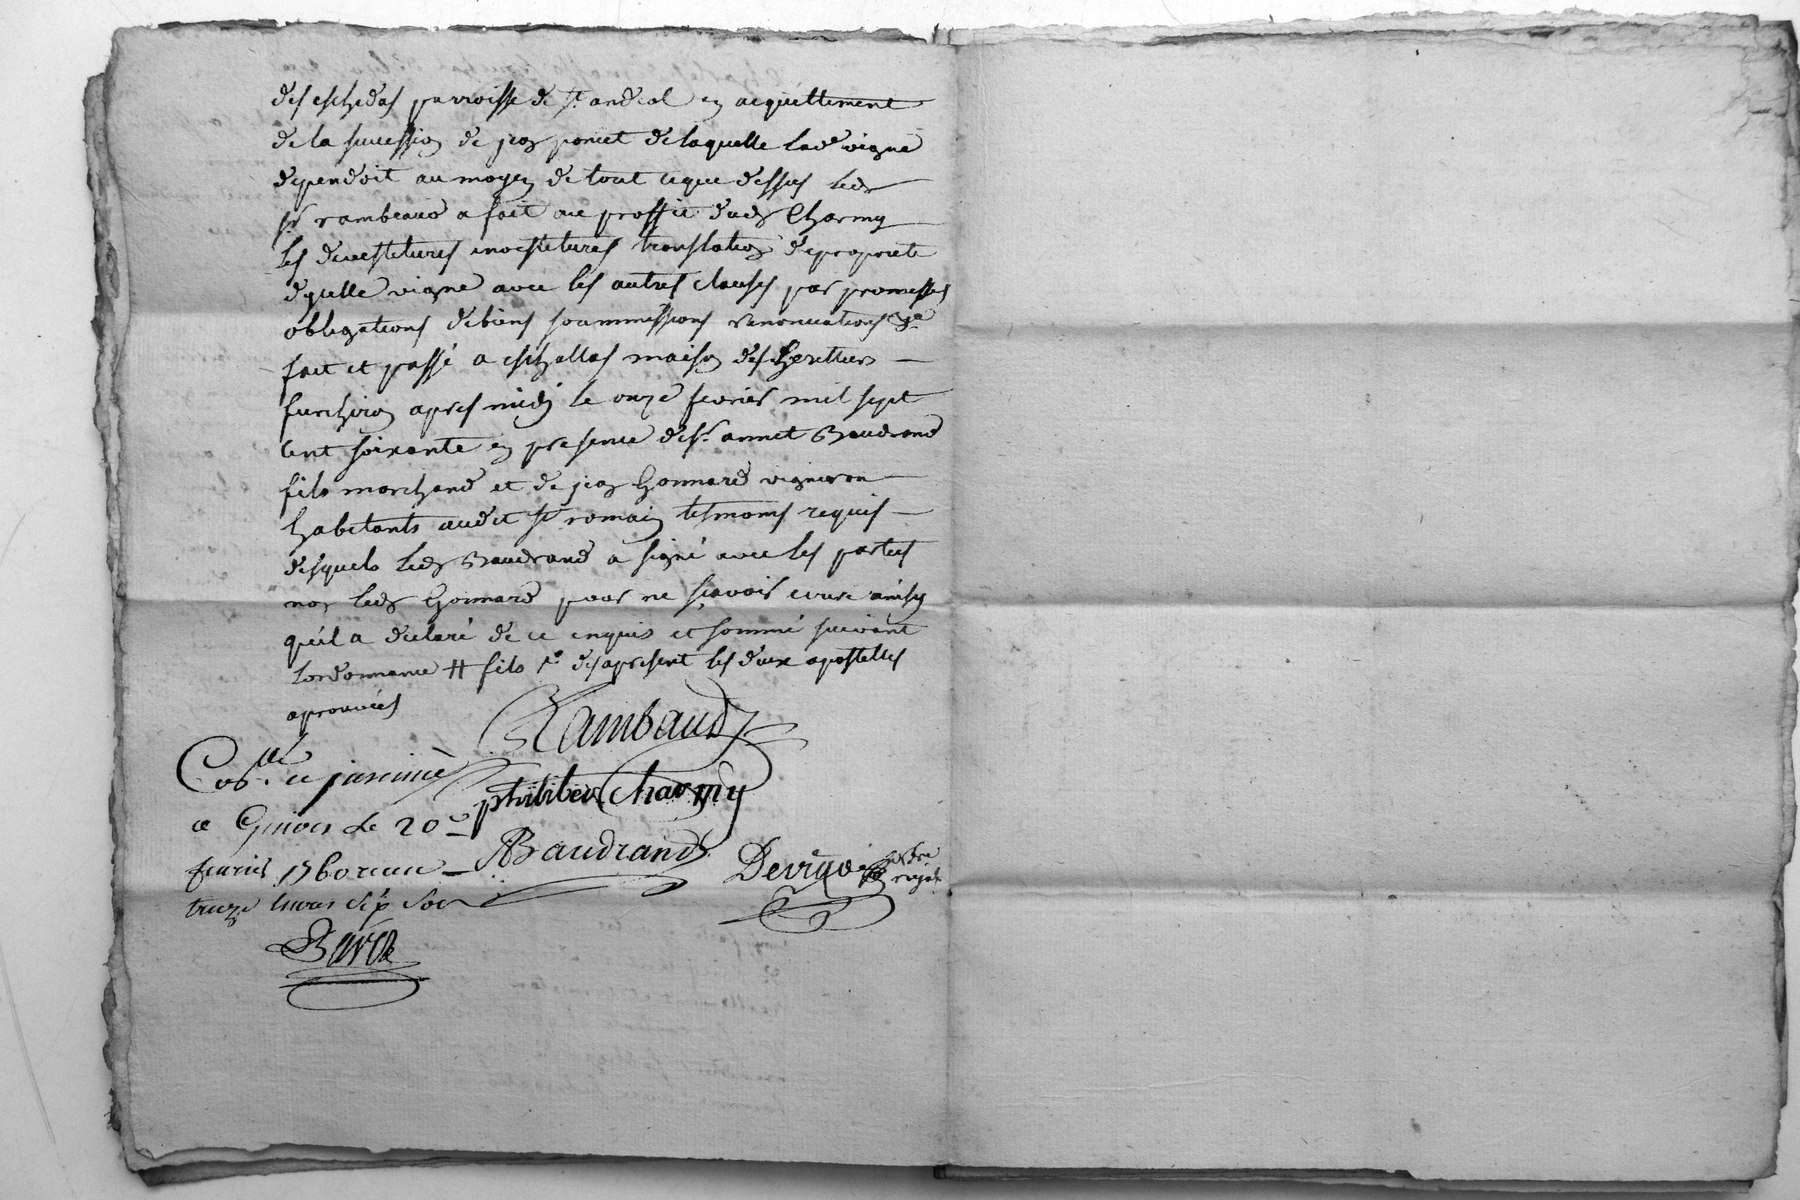 des eschedas parroisse de st andeol en acquittement
de la succession de jean poncet de laquelle lad vigne
dependoit au moyen de tout ceque dessus led
sr rambeaud a fait au proffit dud Charmy
les devestitures investitures translation de propriete
dycelle vigne avec les autres clauses par promesses
obligations de biens soummissions renonciations &a
fait et passé a eschallas maison des heritiers
furchiron apres midy le onze fevrier mil sept
cent soixante en presence de sr annet Baudrand
fils marchand et de jean Gonnard vigneron
habitants audit st romain tesmoins requis
desquels led Baudrand a signé avec les parties
non led Gonnard pour ne sçavoir ecrire ainsy
quil a declaré de ce enquis et sommé suivant
lordonnance # fils # des apresent les deux apostilles
aprouvées
Rambaud
philiber Charmy
ABaudrand
Devigne
royal
Con.lle
a Givors le 20e
fevrier 1760 recu
treize livres sept sols